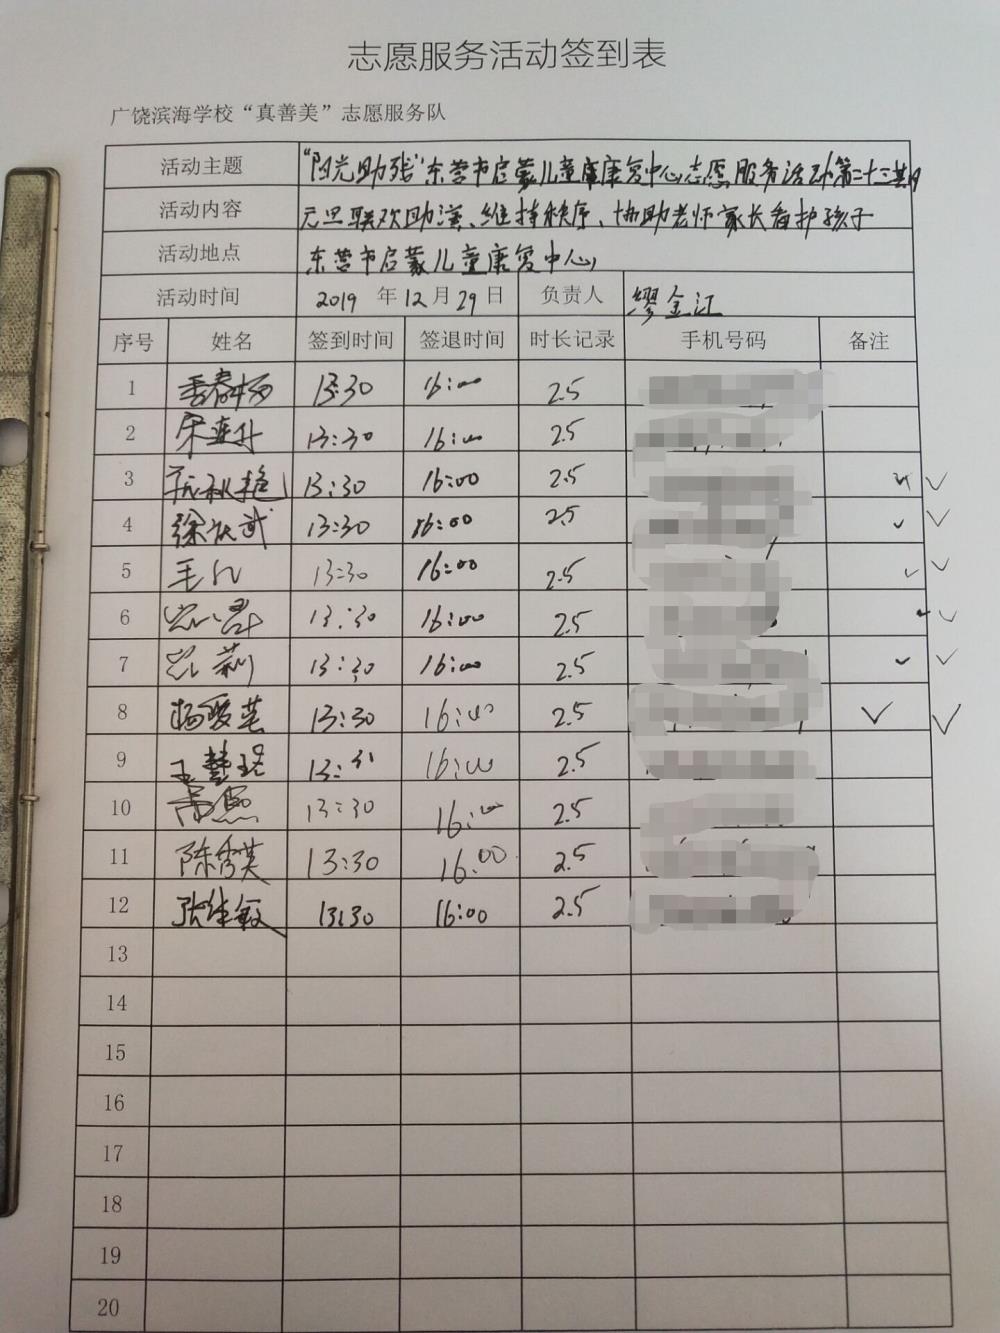 志愿服务活动签到表
广饶滨海学校“真善美”志愿服务队
活动主题 “阳光助残”东营市启蒙儿童康复中心志愿服务活动第二十三期
活动内容 元旦联欢助演、维持秩序、协助老师家长看护孩子
活动地点 东营市启蒙儿童康复中心
活动时间 2019 年 12 月 29 日 负责人 缪金江
序号 姓名 签到时间 签退时间 时长记录 手机号码 备注
1 13:30 16:00 2.5
2 宋连升 13:30 16:00 2.5
3 13:30 16:00 2.5 ✓ ✓
4 徐庆武 13:30 16:00 2.5 ✓ ✓
5 13:30 16:00 2.5 ✓ ✓
6 13:30 16:00 2.5 ✓ ✓
7 13:30 16:00 2.5 ✓ ✓
8 杨爱英 13:30 16:00 2.5 ✓ ✓
9 王慧珺 16:00 2.5
10 13:30 16:00 2.5
11 陈秀英 13:30 16:00 2.5
12 张继敏 13:30 16:00 2.5
13
14
15
16
17
18
19
20